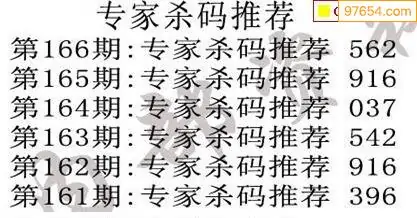 专家杀码推荐
97654.com
第166期:专家杀码推荐 562
第165期:专家杀码推荐 916
第164期:专家杀码推荐 037
第163期:专家杀码推荐 542
第162期:专家杀码推荐 916
第161期:专家杀码推荐 396